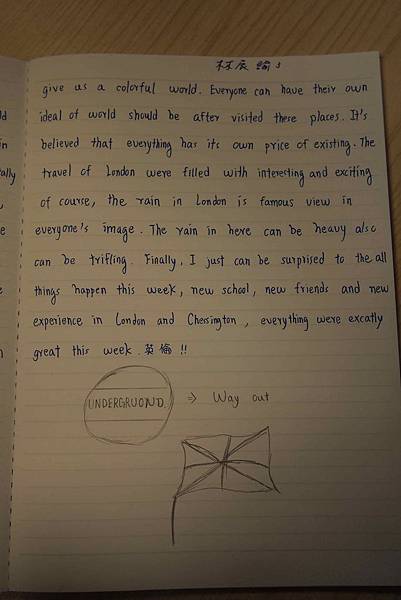 林辰綸 3
give us a colorful world. Everyone can have their own
ideal of world should be after visited these places. It's
believed that everything has its own price of existing. The
travel of London were filled with interesting and exciting
of course, the rain in London is famous view in
everyone's image. The rain in here can be heavy also
can be trifling. Finally, I just can be surprised to the all
things happen this week, new school, new friends and new
experience in London and Chessington, everything were excatly
great this week. 英倫!!
UNDERGRUOND. ⇒ Way out
ld
in
ally
e
e
n